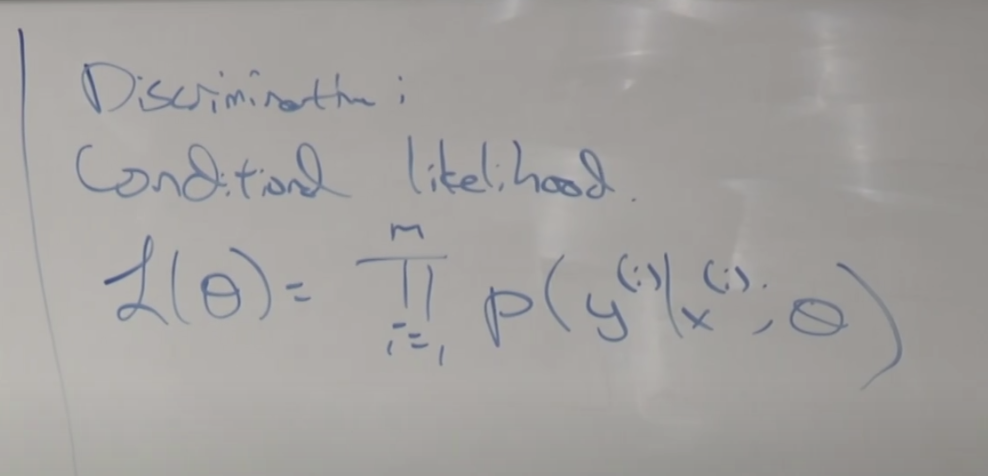 Discriminative:
Conditional likelihood.
m
L(θ) = ∏ p(y⁽ⁱ⁾|x⁽ⁱ⁾; θ)
i=1